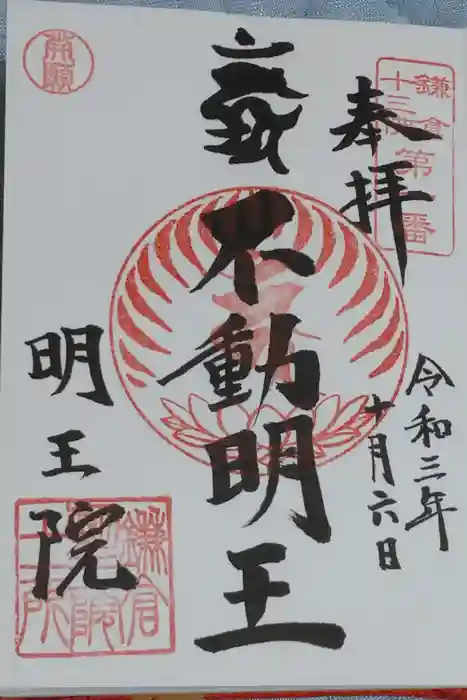 奉拝
鎌倉
十三佛
第一番
令和三年
十月六日
不動明王
明王院
鎌倉